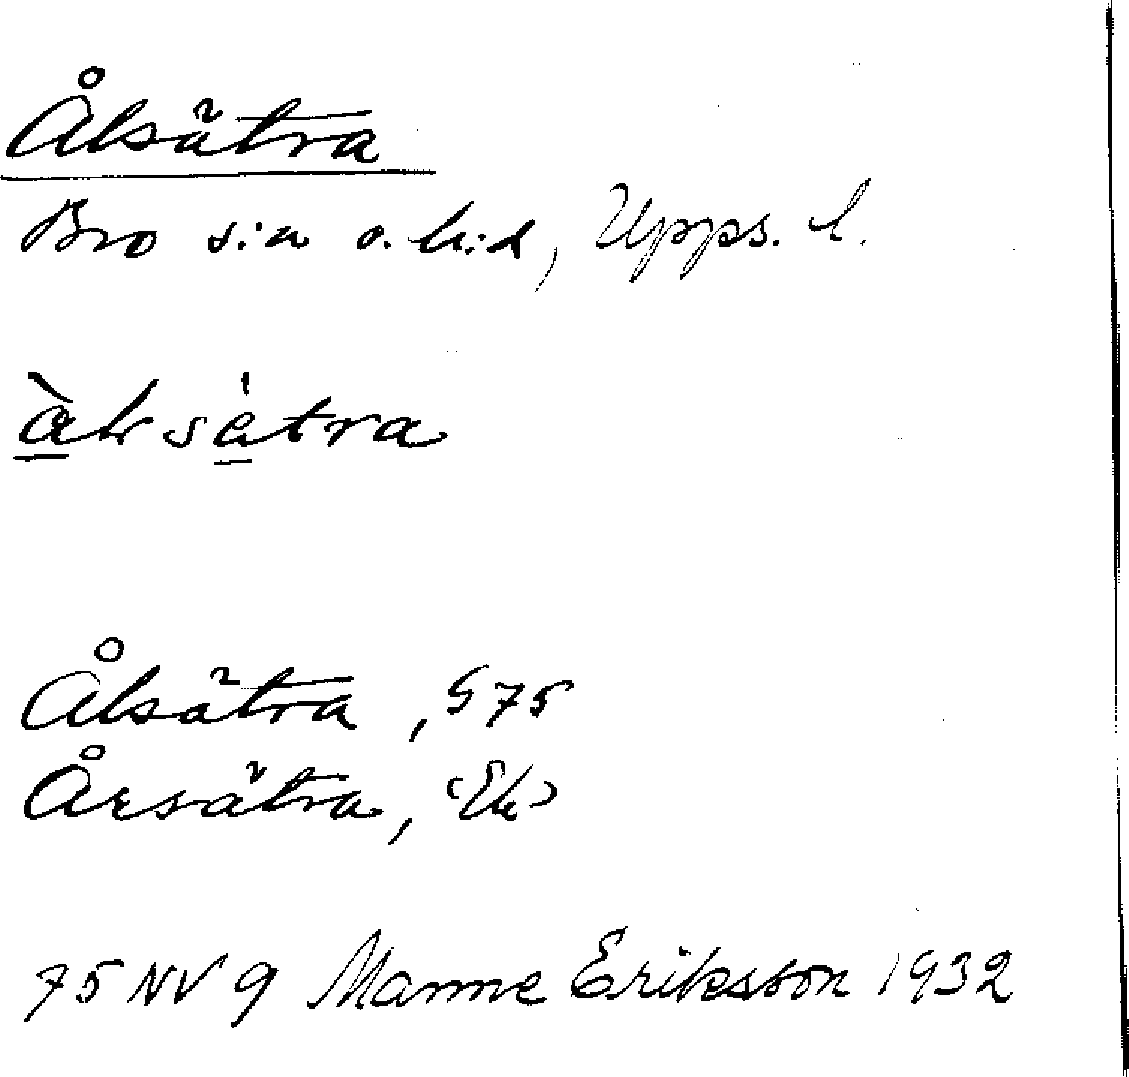 Ålsätra
Bro s:n o. h:d, Upps. l.
Ålsätra, G 75
Årsätra, (Ek)
75 NV 9 Manne Eriksson 1932